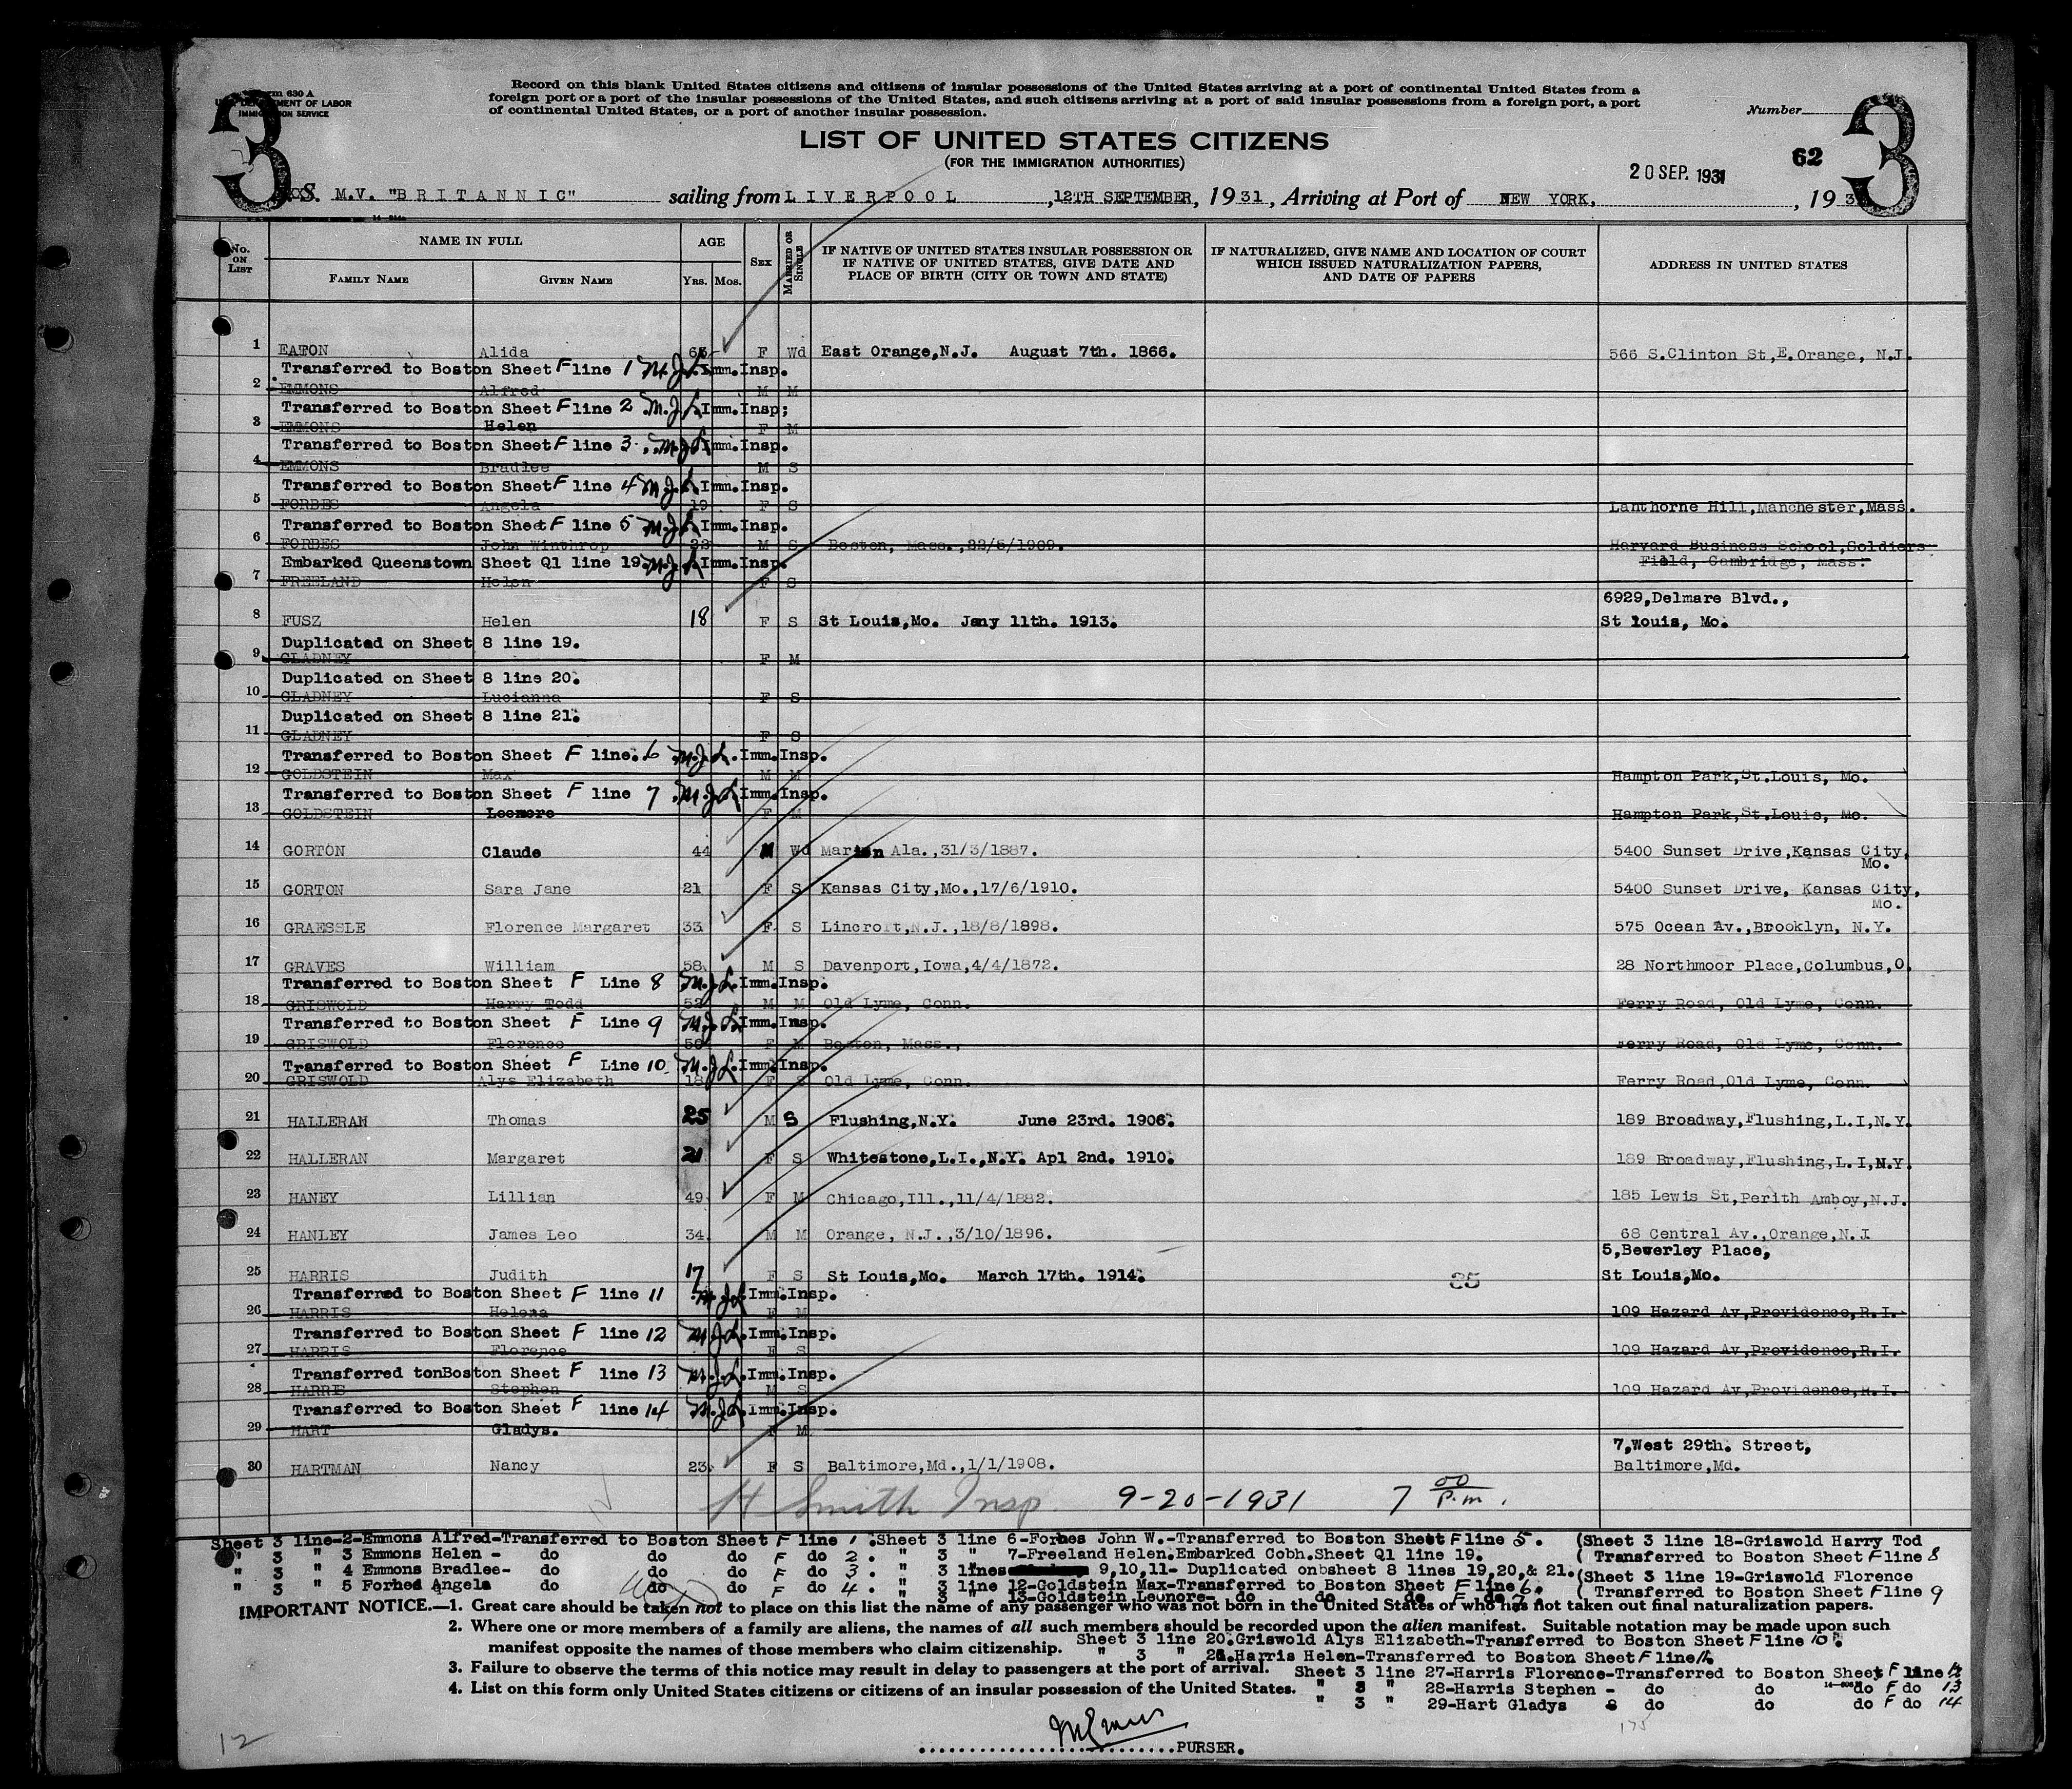 Form 630 A
U.S. DEPARTMENT OF LABOR
IMMIGRATION SERVICE
3
3
Record on this blank United States citizens and citizens of insular possessions of the United States arriving at a port of continental United States from a
foreign port or a port of the insular possessions of the United States, and such citizens arriving at a port of said insular possessions from a foreign port, a port
of continental United States, or a port of another insular possession.
Number
LIST OF UNITED STATES CITIZENS
(FOR THE IMMIGRATION AUTHORITIES)
62
20 SEP. 1931
S. M.V. "BRITANNIC" sailing from LIVERPOOL, 12TH SEPTEMBER, 1931, Arriving at Port of NEW YORK, , 193
No. ON LIST NAME IN FULL AGE SEX MARRIED OR SINGLE IF NATIVE OF UNITED STATES INSULAR POSSESSION OR IF NATIVE OF UNITED STATES, GIVE DATE AND PLACE OF BIRTH (CITY OR TOWN AND STATE) IF NATURALIZED, GIVE NAME AND LOCATION OF COURT WHICH ISSUED NATURALIZATION PAPERS, AND DATE OF PAPERS ADDRESS IN UNITED STATES
FAMILY NAME GIVEN NAME YRS. MOS.
1 EATON Alida F Wd East Orange,N.J. August 7th. 1866. 566 S.Clinton St,E.Orange, N.J.
Transferred to Boston Sheet F line 1 M.J.L. Imm.Insp.
2 EMMONS Alfred M M
Transferred to Boston Sheet F line 2 M.J.L. Imm.Insp;
3 EMMONS Helen F M
Transferred to Boston Sheet F line 3. M.J.L. Imm.Insp.
4 EMMONS Bradlee M S
Transferred to Boston Sheet F line 4 M.J.L. Imm.Insp.
5 FORBES Angela 19 F S Lanthorne Hill,Manchester,Mass.
Transferred to Boston Sheet F line 5 M.J.L. Imm.Insp.
6 FORBES John Winthrop 22 M S Boston, Mass.,22/5/1909. Harvard Business School,Soldiers
Field, Cambridge, Mass.
Embarked Queenstown Sheet Q1 line 19. M.J.L. Imm.Insp.
7 FREELAND Helen F S
6929,Delmare Blvd.,
8 FUSZ Helen 18 F S St Louis,Mo. Jany 11th. 1913. St louis, Mo.
Duplicated on Sheet 8 line 19.
9 GLADNEY F M
Duplicated on Sheet 8 line 20.
10 GLADNEY Lucianna F S
Duplicated on Sheet 8 line 21.
11 GLADNEY F S
Transferred to Boston Sheet F line. 6 M.J.L. Imm.Insp.
12 GOLDSTEIN Max M M Hampton Park,St.Louis, Mo.
Transferred to Boston Sheet F line 7 M.J.L. Imm.Insp.
13 GOLDSTEIN F M Hampton Park,St.Louis, Mo.
14 GORTON Claude 44 M Wd Marion Ala.,31/3/1887. 5400 Sunset Drive,Kansas City,
Mo.
15 GORTON Sara Jane 21 F S Kansas City,Mo.,17/6/1910. 5400 Sunset Drive, Kansas City,
Mo.
16 GRAESSLE Florence Margaret 33 F S Lincroft,N.J.,18/8/1898. 575 Ocean Av.,Brooklyn, N.Y.
17 GRAVES William 58 M S Davenport,Iowa,4/4/1872. 28 Northmoor Place,Columbus,O.
Transferred to Boston Sheet F Line 8 M.J.L. Imm.Insp.
18 GRISWOLD Harry Todd 52 M M Old Lyme, Conn. Ferry Road, Old Lyme, Conn.
Transferred to Boston Sheet F Line 9 M.J.L. Imm.Insp.
19 GRISWOLD Florence 50 F M Boston, Mass., Ferry Road, Old Lyme, Conn.
Transferred to Boston Sheet F Line 10 M.J.L. Imm.Insp.
20 GRISWOLD Alys Elizabeth 18 F S Old Lyme, Conn. Ferry Road,Old Lyme, Conn.
21 HALLERAN Thomas 25 M S Flushing,N.Y. June 23rd. 1906. 189 Broadway,Flushing,L.I,N.Y.
22 HALLERAN Margaret 21 F S Whitestone,L.I.,N.Y. Apl 2nd. 1910. 189 Broadway,Flushing,L.I,N.Y.
23 HANEY Lillian 49 F M Chicago,Ill.,11/4/1882. 185 Lewis St,Perith Amboy,N.J.
24 HANLEY James Leo 34 M M Orange, N.J.,3/10/1896. 68 Central Av.,Orange,N.J
5,Bewerley Place,
25 HARRIS Judith 17 F S St Louis,Mo. March 17th. 1914. 85 St Louis,Mo.
Transferred to Boston Sheet F line 11 M.J.L. Imm.Insp.
26 HARRIS Helena F M 109 Hazard Av,Providence,R.I.
Transferred to Boston Sheet F line 12 M.J.L. Imm.Insp.
27 HARRIS Florence F S 109 Hazard Av,Providence,R.I.
Transferred tonBoston Sheet F line 13 M.J.L. Imm.Insp.
28 HARRIS Stephen M S 109 Hazard Av,Providence,R.I.
Transferred to Boston Sheet F line 14 M.J.L. Imm.Insp.
29 HART Gladys. F M
7,West 29th. Street,
30 HARTMAN Nancy 23 F S Baltimore,Md.,1/1/1908. Baltimore,Md.
H Smith Insp. 9-20-1931 7 00 P.m.
Sheet 3 line-2-Emmons Alfred-Transferred to Boston Sheet F line 1. Sheet 3 line 6-Forbes John W.-Transferred to Boston Sheet F line 5. (Sheet 3 line 18-Griswold Harry Tod
" 3 " 3 Emmons Helen - do do do F do 2. " 3 " 7-Freeland Helen.Embarked Cobh.Sheet Q1 line 19. ( Transferred to Boston Sheet F line 8
" 3 " 4 Emmons Bradlee- do do do F do 3. " 3 lines 9,10,11- Duplicated onbsheet 8 lines 19,20,& 21. (Sheet 3 line 19-Griswold Florence
" 3 " 5 Forhed Angela do do do F do 4. " 3 line 12-Goldstein Max-Transferred to Boston Sheet F line 6. ( Transferred to Boston Sheet F line 9
" 3 13-Goldstein Leonore- do do F do 7.
IMPORTANT NOTICE.—1. Great care should be taken not to place on this list the name of any passenger who was not born in the United States or who has not taken out final naturalization papers.
2. Where one or more members of a family are aliens, the names of all such members should be recorded upon the alien manifest. Suitable notation may be made upon such
manifest opposite the names of those members who claim citizenship. Sheet 3 line 20.Griswold Alys Elizabeth-Transferred to Boston Sheet F line 10.
" 3 " 26.Harris Helen-Transferred to Boston Sheet F line 11.
3. Failure to observe the terms of this notice may result in delay to passengers at the port of arrival. Sheet 3 line 27-Harris Florence-Transferred to Boston Sheet F line 12
4. List on this form only United States citizens or citizens of an insular possession of the United States. " 3 " 28-Harris Stephen - do do do F do 13
" 3 " 29-Hart Gladys do do do F do 14
175
12
PURSER.